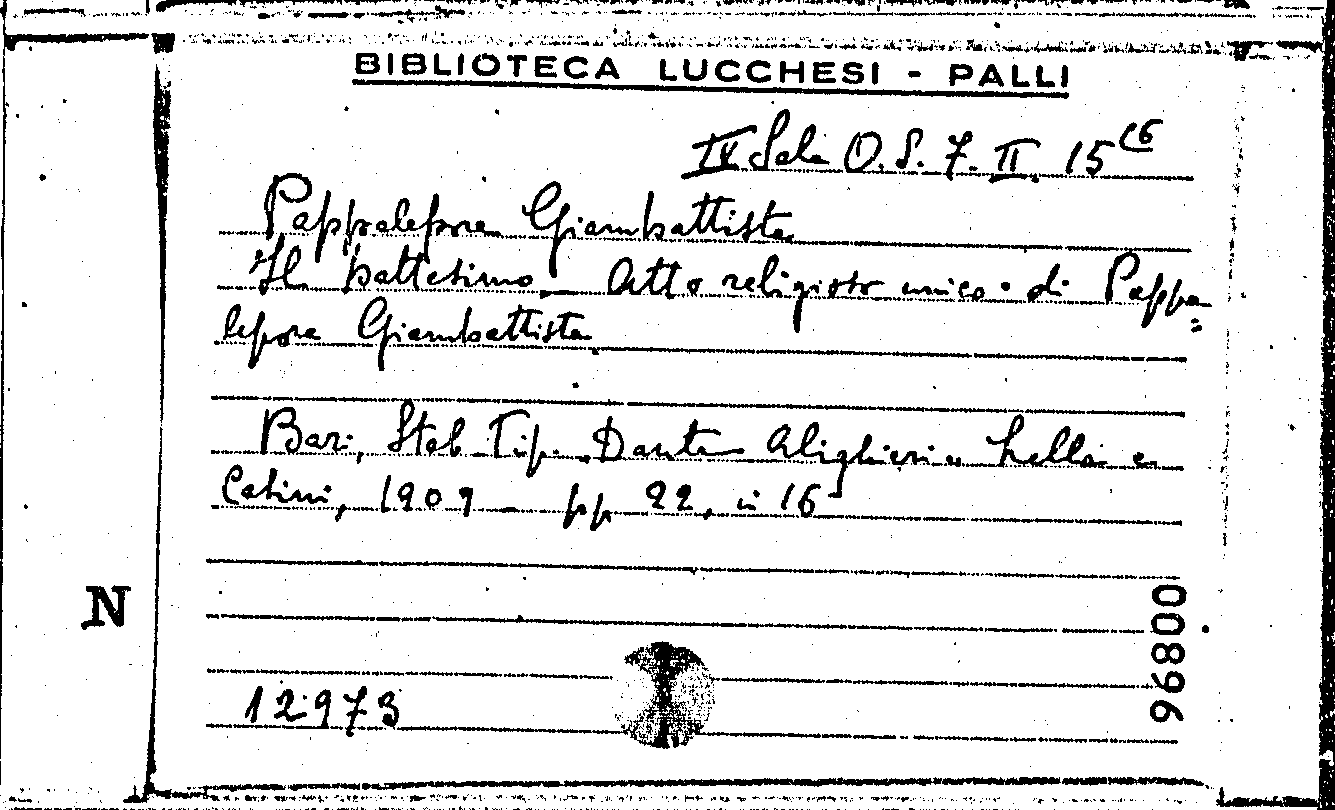 BIBLIOTECA LUCCHESI - PALLI
IX Sala O. S. 7. II. 15 16
Pappalepore Giambattista
Il battesimo - Atto religioso unico - di Pappa=
lepore Giambattista
Bari, Stab. Tip. Dante Alighieri Lella e
Catini, 1909 - pp 22, in 16
N
12973
00896